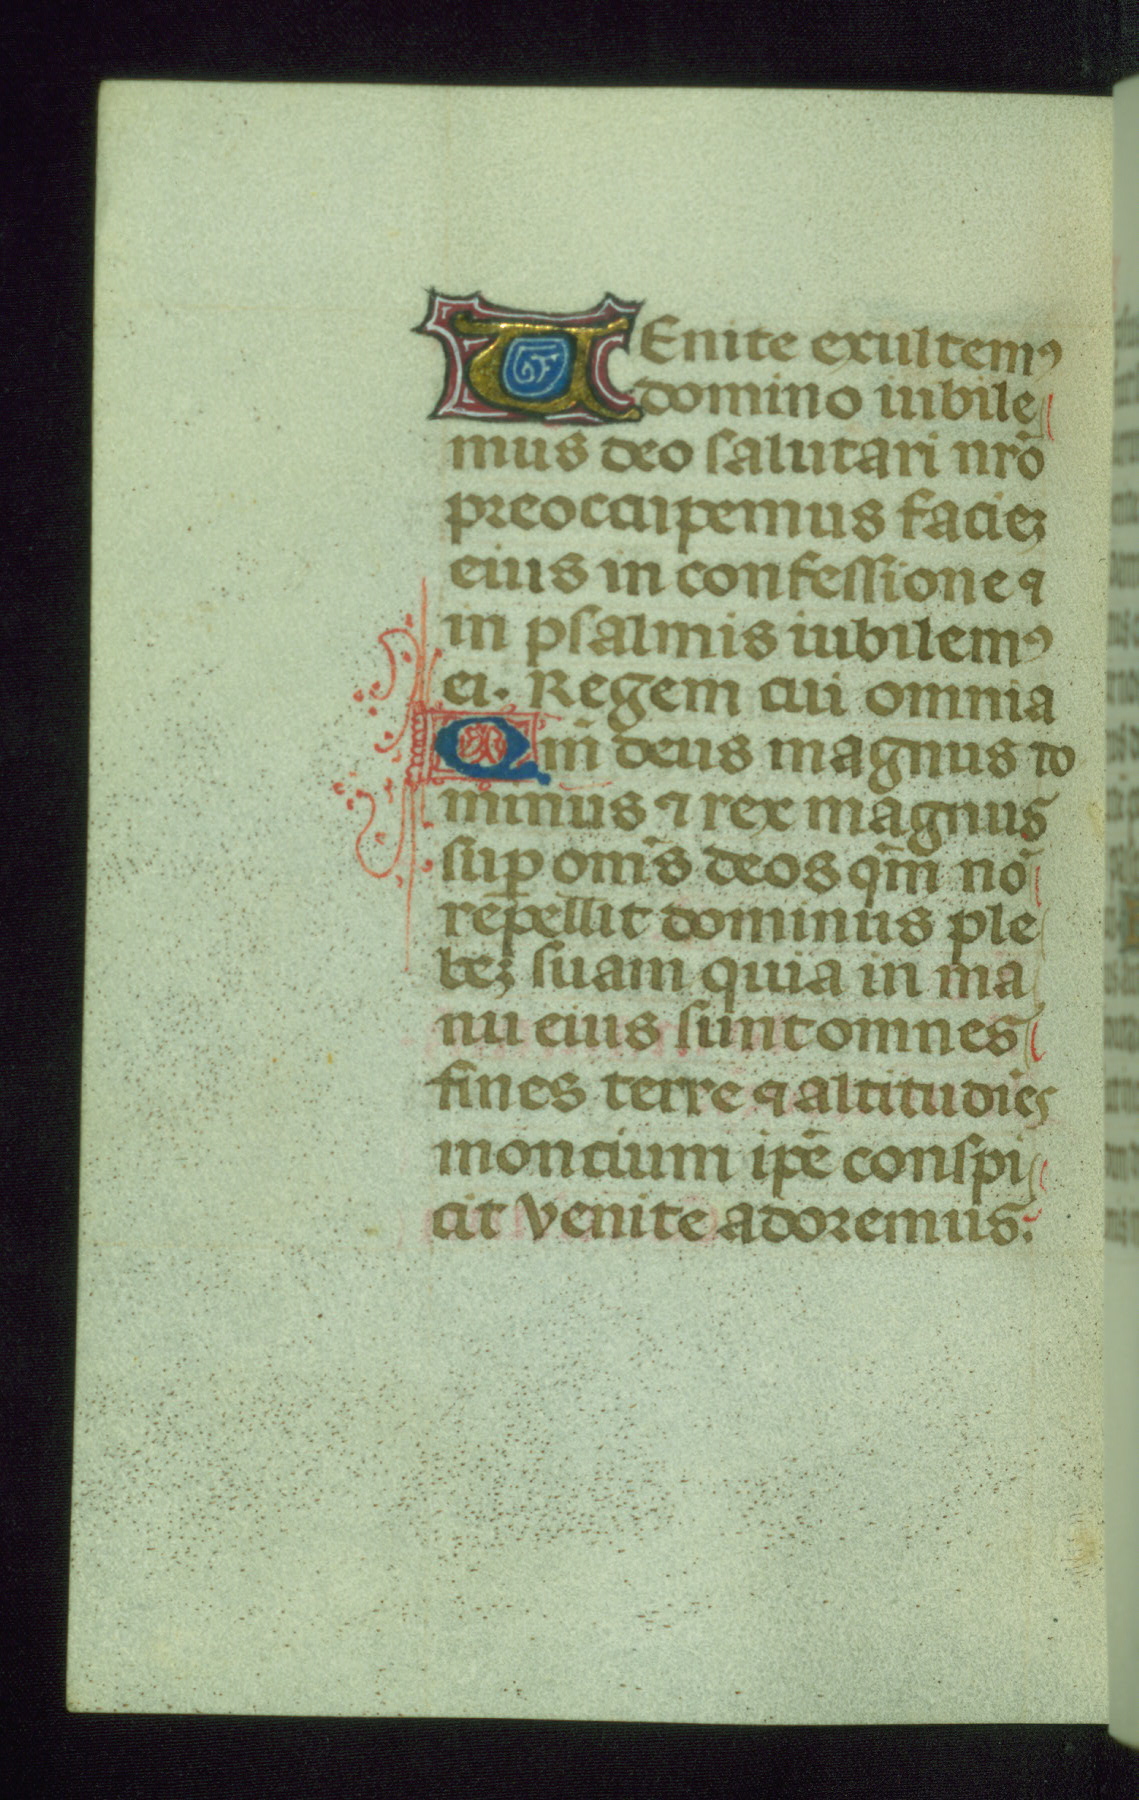 VEnite exultemꝰ
domino iubile
mus deo salutari nr̄o
preoccupemus facieꝫ
eius in confessione ⁊
in psalmis iubilemꝰ
ei. Regem cui omnia
Qm̄ deus magnus do
minus ⁊ rex magnus
suꝑ om̄s deos qm̄ nō
repellit dominus ple
beꝫ suam quia in ma
nu eius sunt omnes
fines terre ⁊ altitudiēs
moncium ipē conspi
cit Venite adoremus.